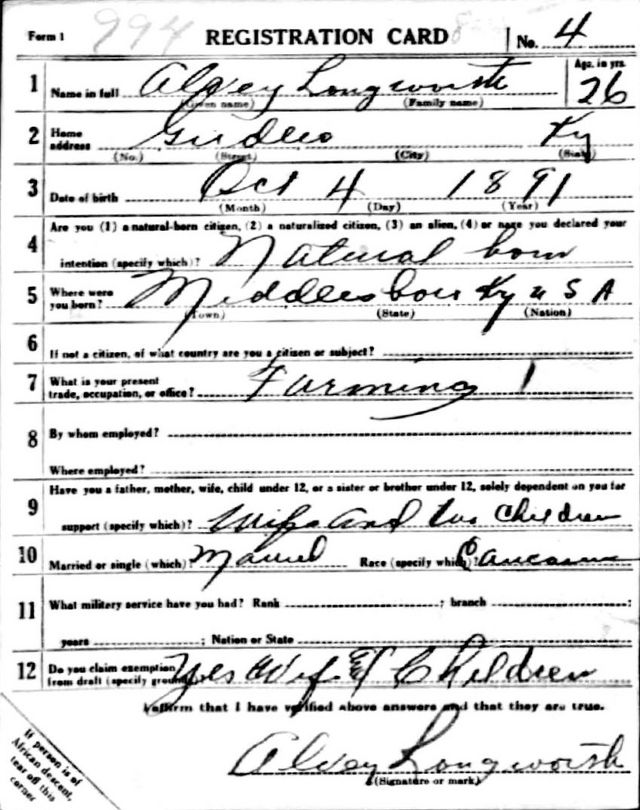 Form 1 994 REGISTRATION CARD No. 4
1 Name in full Alvey Longworth Age, in yrs. 26
(Given name) (Family name)
2 Home address Girdler Ky
(No.) (Street) (City) (State)
3 Date of birth Oct 4 1891
(Month) (Day) (Year)
Are you (1) a natural-born citizen, (2) a naturalized citizen, (3) an alien, (4) or have you declared your
4 intention (specify which)? Natural born
5 Where were you born? Middlesboro Ky U S A
(Town) (State) (Nation)
6 If not a citizen, of what country are you a citizen or subject?
7 What is your present trade, occupation, or office? Farming 1
8 By whom employed?
Where employed?
9 Have you a father, mother, wife, child under 12, or a sister or brother under 12, solely dependent on you for
support (specify which)? Wife and two Children
10 Married or single (which)? Married Race (specify which)? Caucasian
11 What military service have you had? Rank ; branch ;
years ; Nation or State
12 Do you claim exemption from draft (specify grounds)? Yes Wife & Children
I affirm that I have verified above answers and that they are true.
Alvey Longworth
(Signature or mark)
If person is of
African descent,
tear off this
corner